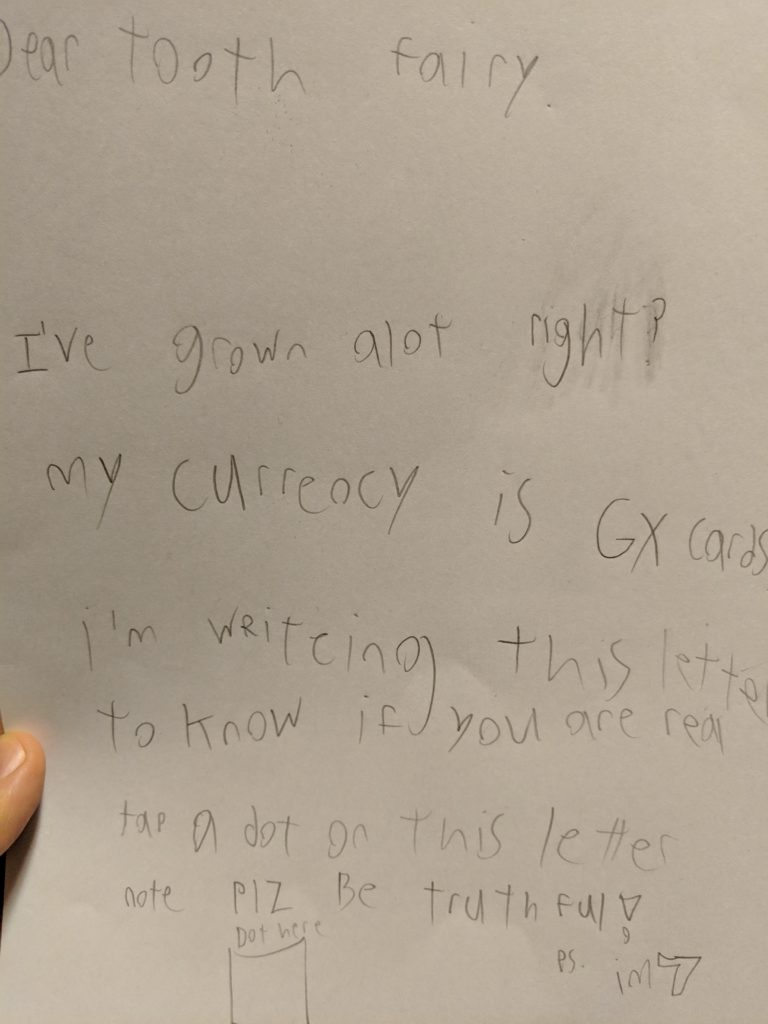 Dear tooth fairy.
I've grown alot right?
my curreocy is GX cards
i'm wreitcing this letter
to know if you are real
tap a dot on this letter
note plz Be truthful!
Dot here
ps. im 7